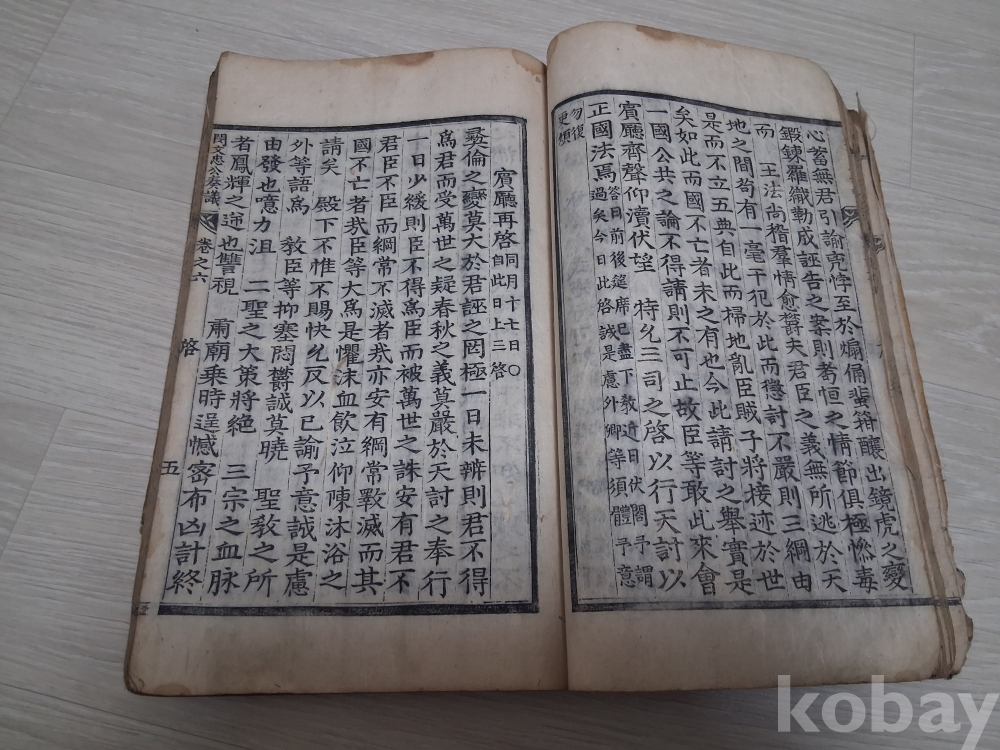 心蓄無君引諭兇悖至於煽俑輩箱釀出鏡虎之變
鍛鍊羅織勒成誣告之案則耉恒之情節俱極慘毒
而 王法尙稽羣情愈欝夫君臣之義無所逃於天
地之間苟有一毫干犯於此而懲討不嚴則三綱由
是而不立五典自此而掃地亂臣賊子將接迹於世
矣如此而國不亡者未之有也今此請討之擧實是
一國公共之論不得請則不可止故臣等敢此來會
賓廳齊聲仰瀆伏望 特允三司之啓以行天討以
正國法焉 答曰前後筵席已盡下敎近日伏閤予謂
過矣今日此啓誠是慮外卿等須體予意
勿復
更煩
賓廳再啓 同月十七日○
自此日上二啓
彜倫之變莫大於君誣之罔極一日未辨則君不得
爲君而受萬世之疑春秋之義莫嚴於天討之奉行
一日少緩則臣不得爲臣而被萬世之誅安有君不
君臣不臣而綱常不滅者哉亦安有綱常斁滅而其
國不亡者哉臣等大爲是懼沫血飮泣仰陳沐浴之
請矣 殿下不惟不賜快允反以已諭予意誠是慮
外等語爲 敎臣等抑塞悶欝誠莫曉 聖敎之所
由發也噫力沮 二聖之大策將絶 三宗之血脉
者鳳輝之 也讐視 肅廟乘時逞憾密布凶計終
閔文忠公奏議 卷之六 啓 五